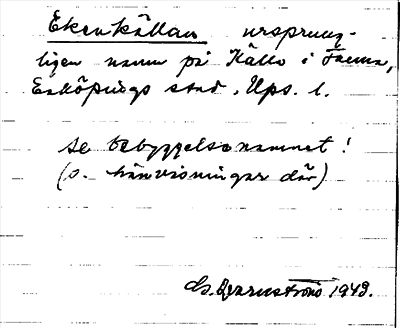 Ekenkällan ursprung-
ligen namn på Källa i Fanna,
Enköpings stad, Ups. l.
se bebyggelsenamnet!
(o. hänvisningar där)
Bjurström 1943.